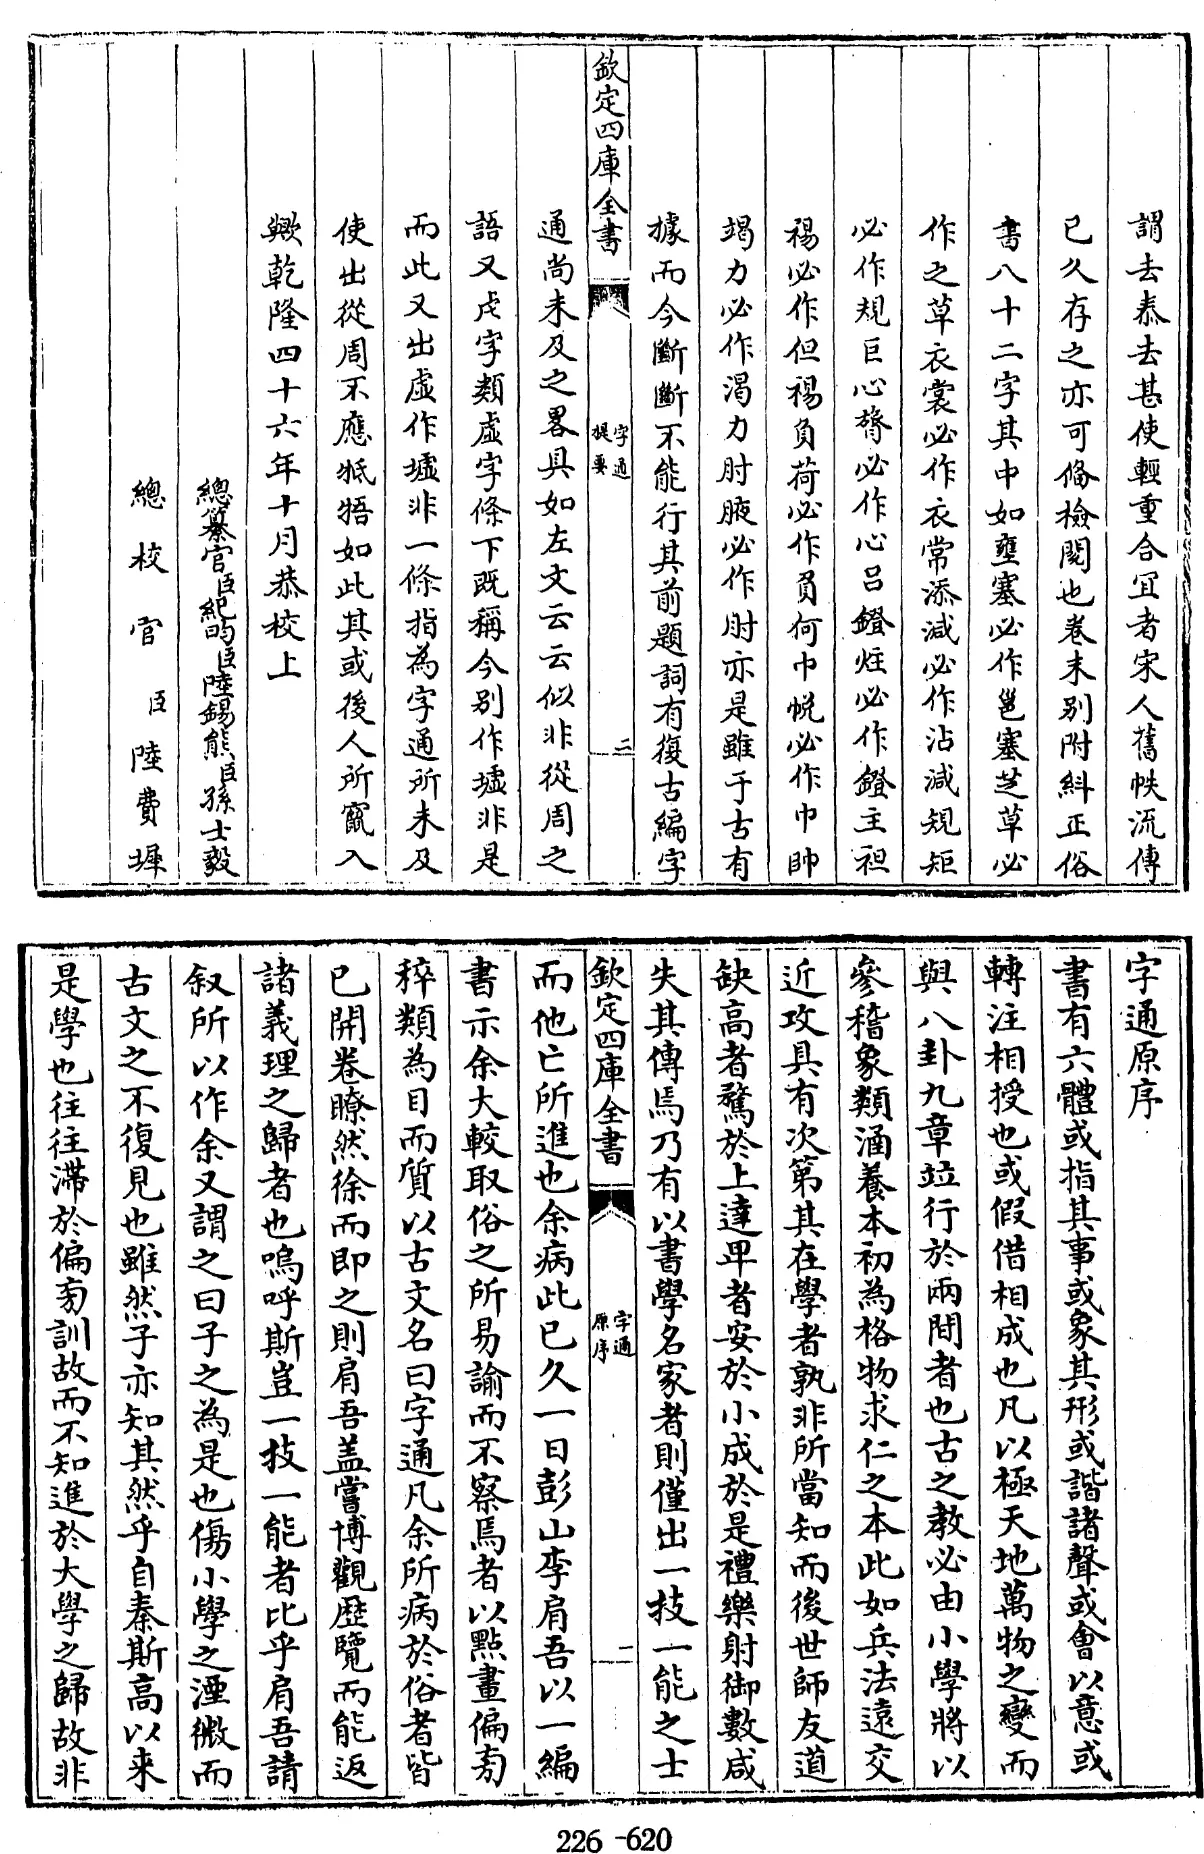 謂去泰去甚使輕重合宜者宋人舊帙流傳
已久存之亦可備檢閱也卷末别附糾正俗
書八十二字其中如壅塞必作邕塞芝草必
作之草衣裳必作衣常添減必作沾減規矩
必作規巨心膂必作心呂鐙炷必作鐙主袒
裼必作但裼負荷必作負何巾帨必作巾帥
竭力必作渴力肘腋必作肘亦是雖于古有
據而今斷斷不能行其前題詞有復古編字
欽定四庫全書
字通
提要
二
通尚未及之畧具如左文云云似非從周之
語又虍字類虛字條下既稱今别作墟非是
而此又出虛作墟非一條指為字通所未及
使出從周不應牴牾如此其或後人所竄入
歟乾隆四十六年十月恭校上
總纂官臣紀昀臣陸錫熊臣孫士毅
總校官臣陸費墀
字通原序
書有六體或指其事或象其形或諧諸聲或會以意或
轉注相授也或假借相成也凡以極天地萬物之變而
與八卦九章竝行於兩間者也古之教必由小學將以
參稽象類涵養本初為格物求仁之本此如兵法遠交
近攻具有次第其在學者孰非所當知而後世師友道
缺高者騖於上達卑者安於小成於是禮樂射御數咸
失其傳焉乃有以書學名家者則僅出一技一能之士
欽定四庫全書
字通
原序
一
而他亡所進也余病此已久一日彭山李肩吾以一編
書示余大較取俗之所易諭而不察焉者以點畫偏旁
稡類為目而質以古文名曰字通凡余所病於俗者皆
已開卷瞭然徐而即之則肩吾盖嘗博觀歷覽而能返
諸義理之歸者也嗚呼斯豈一技一能者比乎肩吾請
叙所以作余又謂之曰子之為是也傷小學之湮微而
古文之不復見也雖然子亦知其然乎自秦斯高以来
是學也往往滯於偏旁訓故而不知進於大學之歸故非
226-620